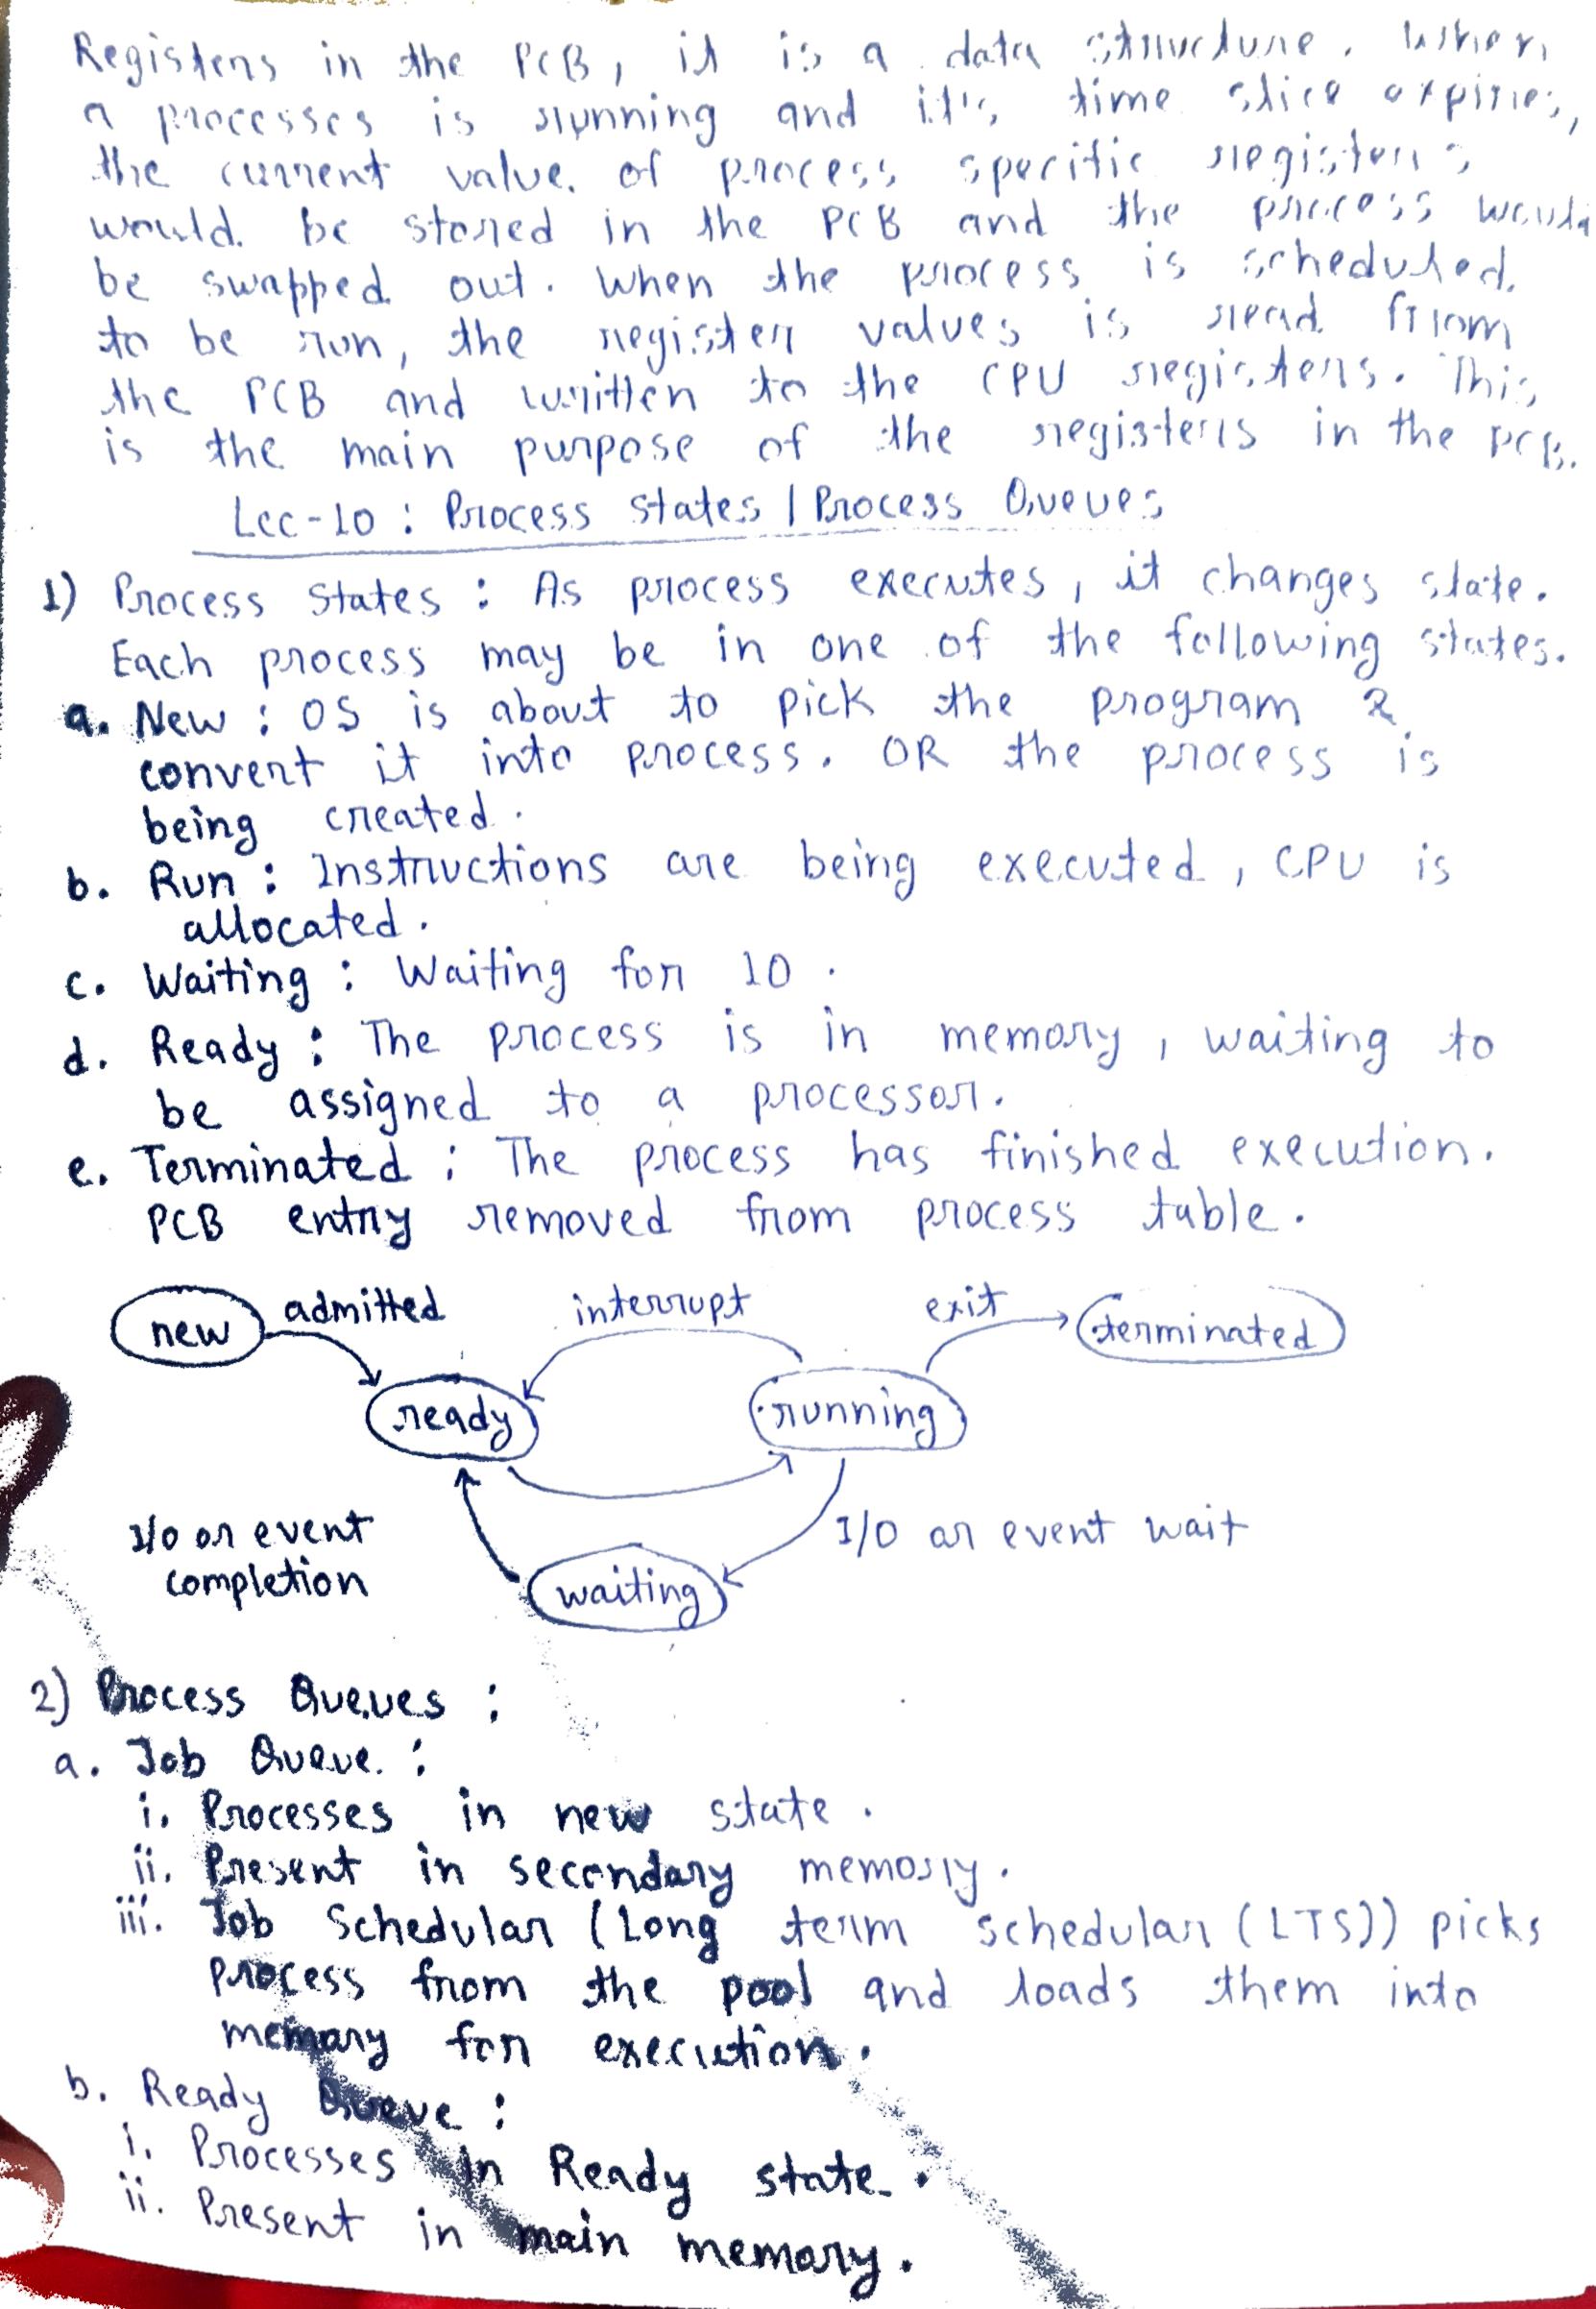 Registers in the PCB, it is a data structure. When
a processes is running and it's time slice expires,
the current value of process specific registers
would be stored in the PCB and the process would
be swapped out. When the process is scheduled
to be run, the register values is read from
the PCB and written to the CPU registers. This
is the main purpose of the registers in the PCB.
Lec-10 : Process states | Process Queues
1) Process States : As process executes, it changes state.
Each process may be in one of the following states.
a. New : OS is about to pick the program &
convert it into process. OR the process is
being created.
b. Run : Instructions are being executed, CPU is
allocated.
c. Waiting : Waiting for IO.
d. Ready : The process is in memory, waiting to
be assigned to a processor.
e. Terminated : The process has finished execution.
PCB entry removed from process table.
new admitted interrupt exit terminated
ready running
I/O or event completion
I/O or event wait
waiting
2) Process Queues :
a. Job Queue :
i. Processes in new state.
ii. Present in secondary memory.
iii. Job Schedular (Long term schedular (LTS)) picks
process from the pool and loads them into
memory for execution.
b. Ready Queue :
i. Processes in Ready state.
ii. Present in main memory.